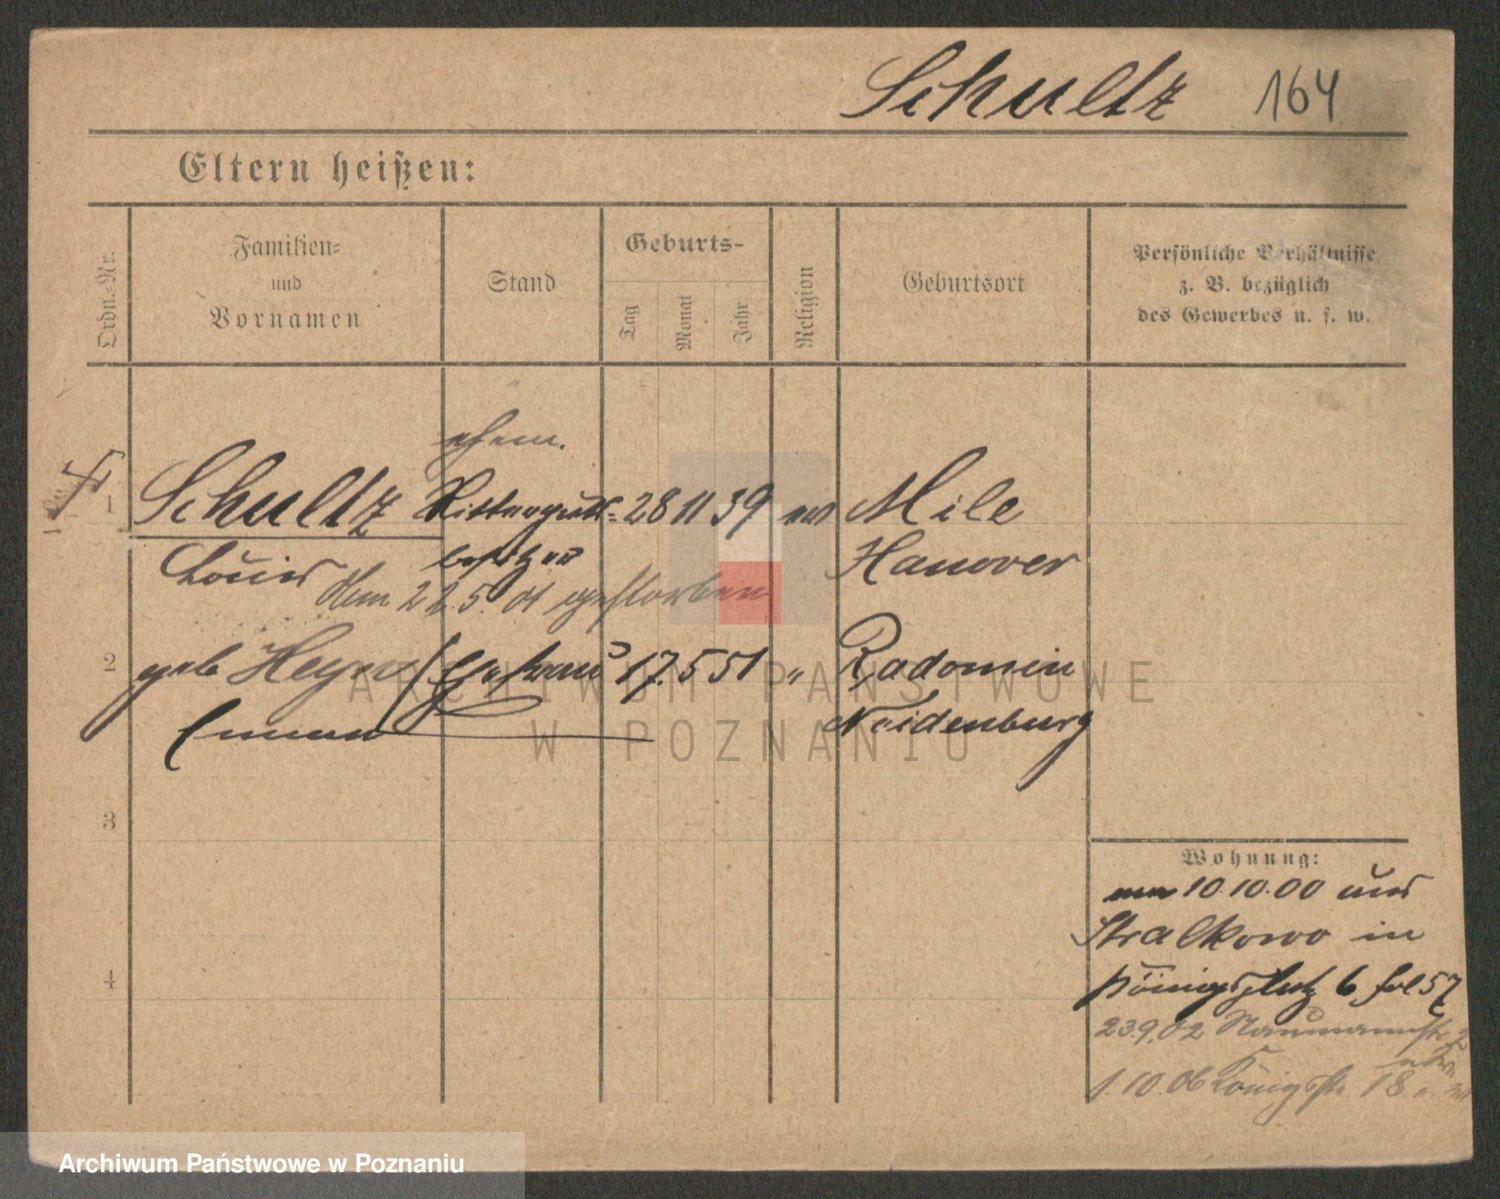 Schultz 164
Eltern heißen:
Ordn.-Nr.
Familien-
und
Vornamen
Stand
Geburts-
Tag
Monat
Jahr
Religion
Geburtsort
Persönliche Verhältnisse
z. B. bezüglich
des Gewerbes u. s. w.
ehem.
1 Schultz Ritterguts- 28 11 39 ev Mile
Louis besitzer Hanover
22.5.01 gestorben
2 geb Heyn Ehefrau 17.5 51 " Radomin
Emma Neidenburg
ARCHIWUM PAŃSTWOWE
W POZNANIU
3
4
Wohnung:
10.10.00 aus
Stralkowo in
Königsplatz 6 fol 57
23.9.02 Naumannstr
1.10.06 Königstr. 18
Archiwum Państwowe w Poznaniu